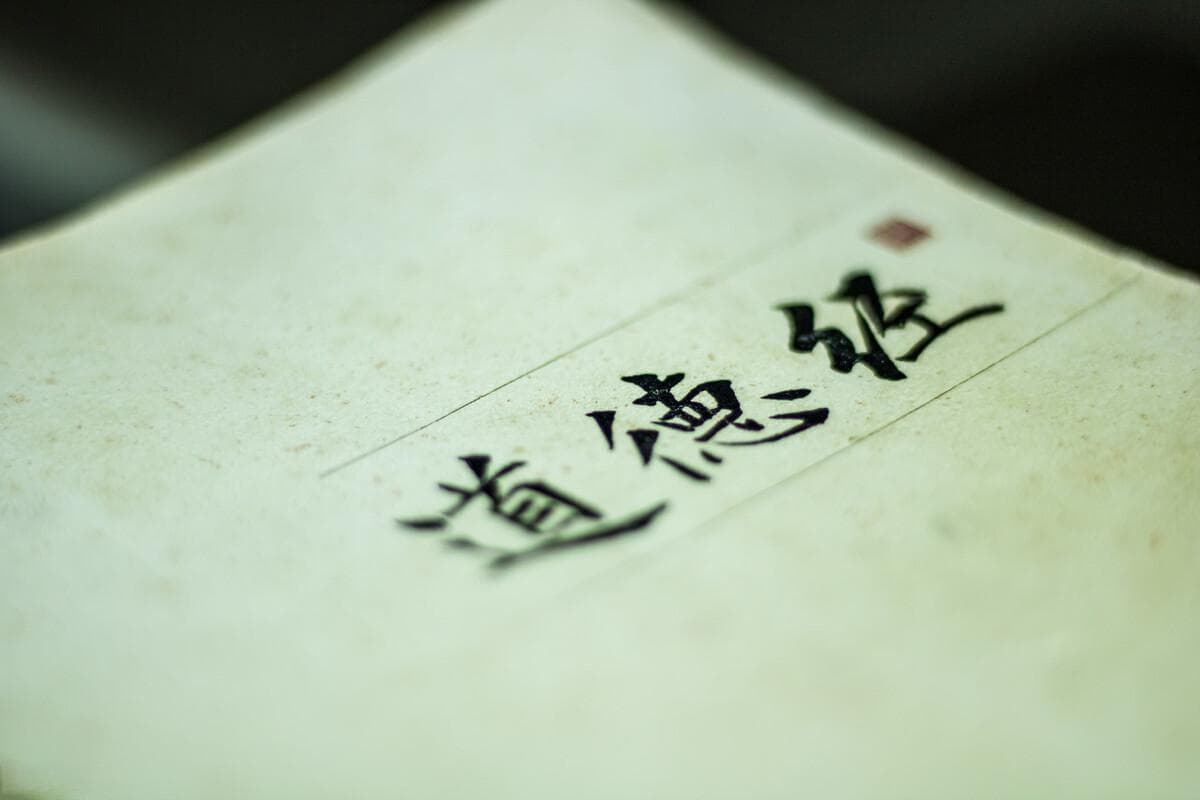 道德经